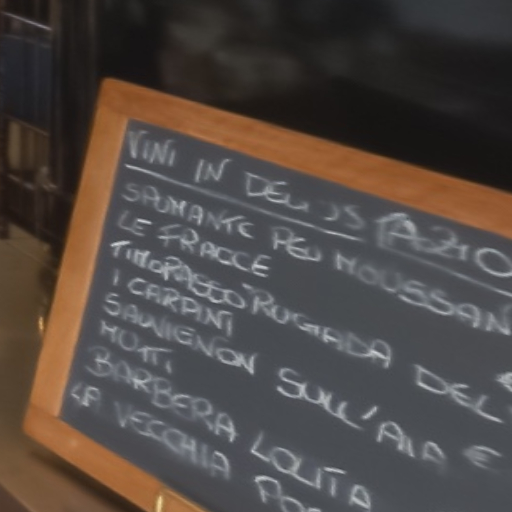 VINI IN DEGUSTAZIO
SPUMANTE PEU MOUSSAN
LE FRACCE
TIMORASSO "RUGIADA DEL
I CARPINI
SAUVIGNON SULL'AIA €
MOTTI
BARBERA LOLITA
LA VECCHIA POS